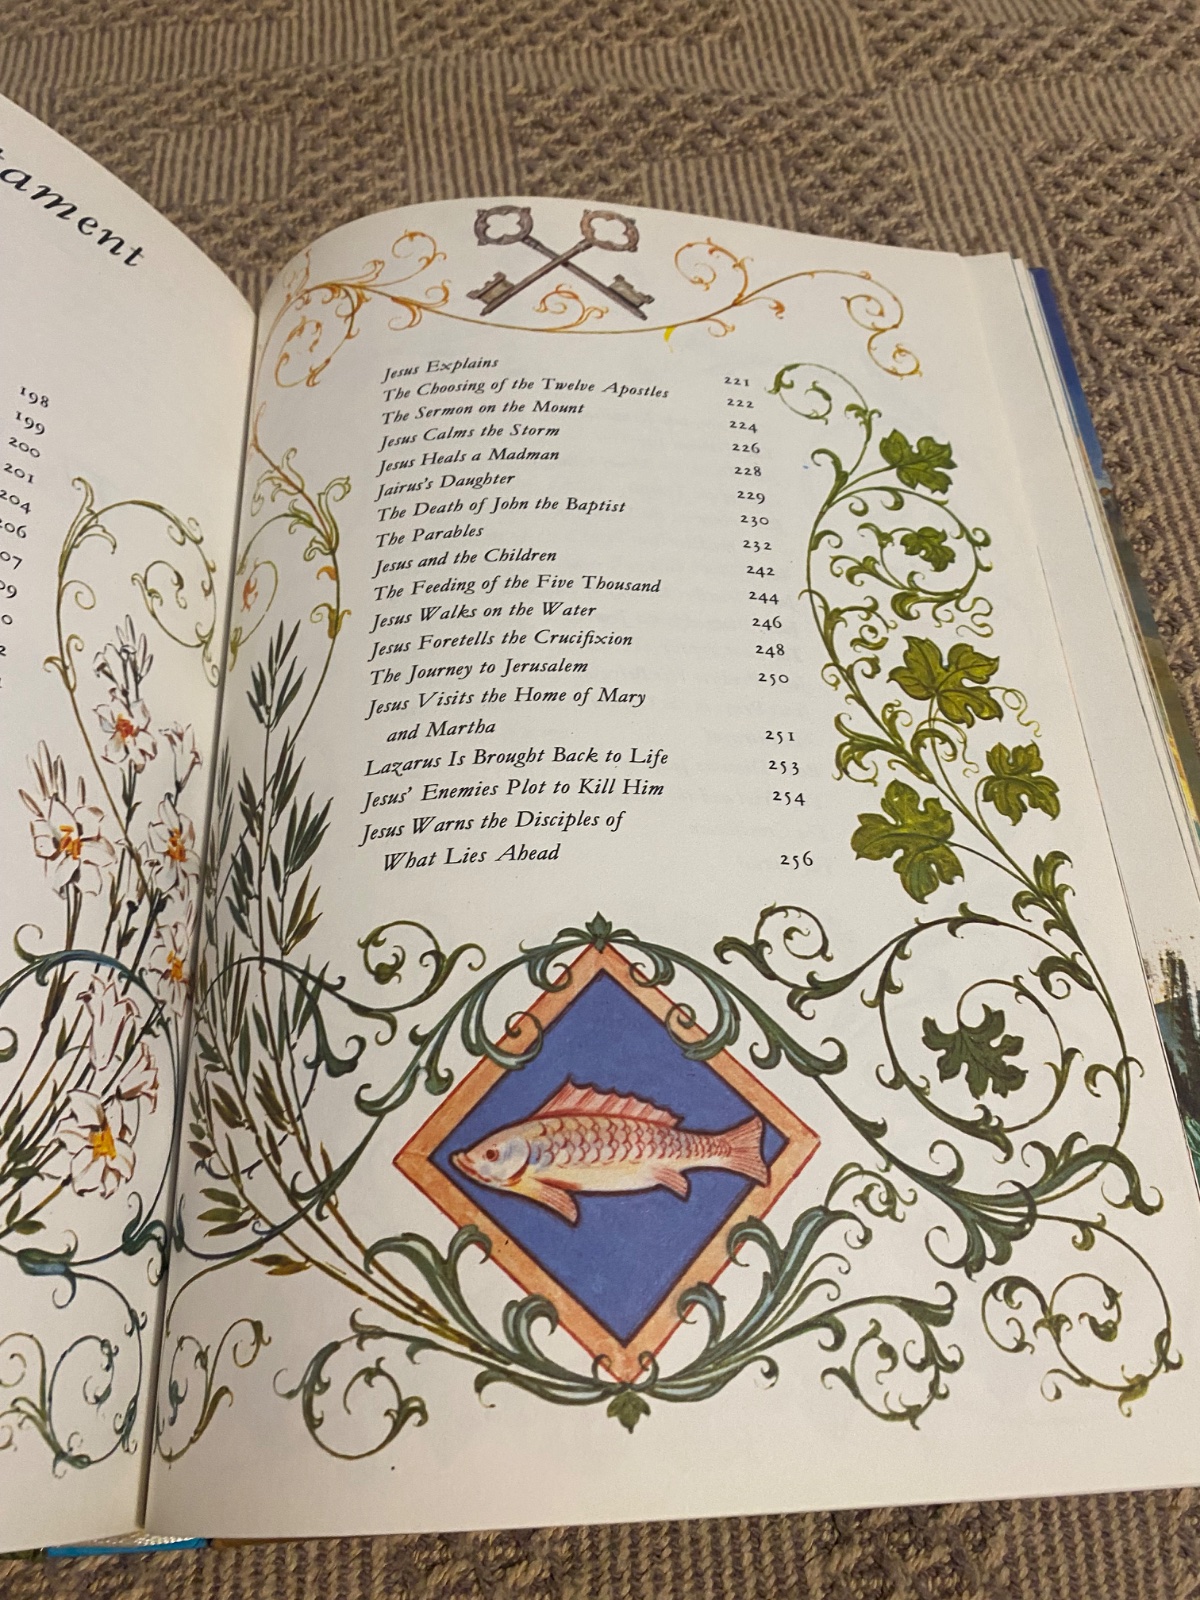 tament
198
199
200
201
204
206
07
09
Jesus Explains 221
The Choosing of the Twelve Apostles 222
The Sermon on the Mount 224
Jesus Calms the Storm 226
Jesus Heals a Madman 228
Jairus's Daughter 229
The Death of John the Baptist 230
The Parables 232
Jesus and the Children 242
The Feeding of the Five Thousand 244
Jesus Walks on the Water 246
Jesus Foretells the Crucifixion 248
The Journey to Jerusalem 250
Jesus Visits the Home of Mary
and Martha 251
Lazarus Is Brought Back to Life 253
Jesus' Enemies Plot to Kill Him 254
Jesus Warns the Disciples of
What Lies Ahead 256